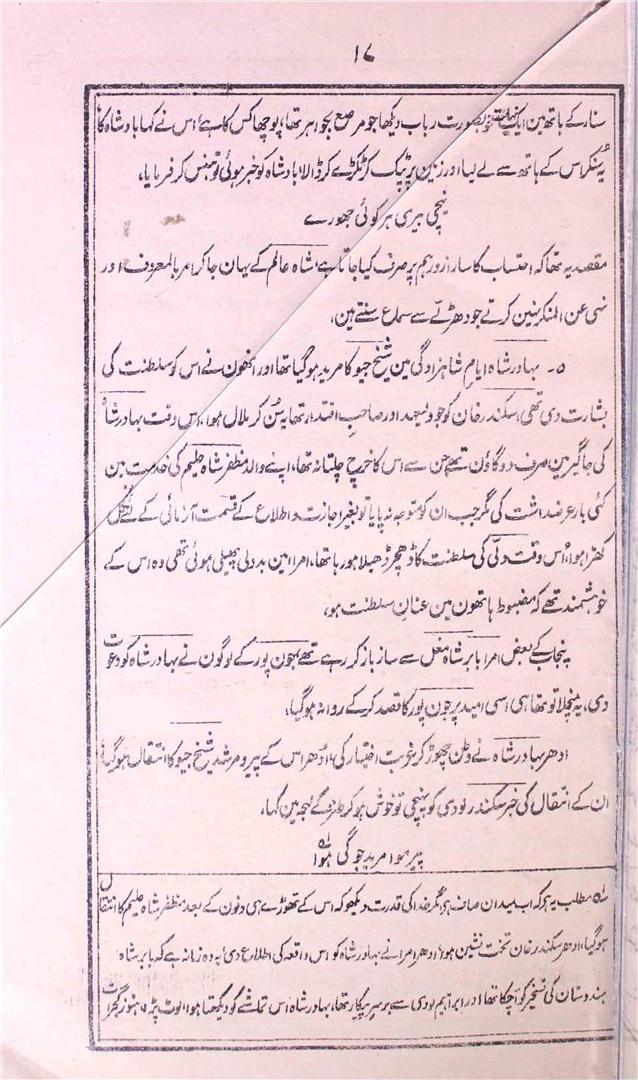 ۱۷
سنار کے ہاتھ مین ایک نہایت خوبصورت رباب دیکھا جو مرصع بجواہر تھا، پوچھا کس کا ہے؟ اس نے کہا بادشاہ کا
یہ سنکر اس کے ہاتھ سے لے لیا اور زمین پر پٹک کر ٹکڑے ٹکڑے کر ڈالا بادشاہ کو خبر ہوئی تو ہنس کر فرمایا،
نیچی بیری ہر کوئی جھورے
مقصد یہ تھا کہ احتساب کا سارا زور ہم پر صرف کیا جاتا ہے، شاہ عالم کے یہان جا کر امر بالمعروف اور
نہی عن المنکر نہین کرتے جو دھڑلّے سے سماع سنتے ہین،
۵۔ بہادر شاہ ایام شاہزادگی مین شیخ جیو کا مرید ہو گیا تھا اور انھون نے اس کو سلطنت کی
بشارت دی تھی، سکندر خان کو جو ولیعہد اور صاحب اقتدار تھا یہ سُن کر ملال ہوا، اس وقت بہادر شاہ
کی جاگیر مین صرف دو گاؤن تھے جن سے اس کا خرچ چلتا نہ تھا، اپنے والد مظفر شاہ حلیم کی خدمت مین
کئی بار عرضداشت کی مگر جب ان کو متوجہ نہ پایا تو بغیر اجازت و اطلاع کے قسمت آزمائی کے لئے نکل
کھڑا ہوا، اُس وقت دلّی کی سلطنت کا ڈھچر ڈھیلا ہو رہا تھا، امرا مین بد دلی پھیلی ہوئی تھی وہ اس کے
خوشمند تھے کہ مضبوط ہاتھون مین عنانِ سلطنت ہو،
پنجاب کے بعض امرا بابر شاہ مغل سے ساز باز کر رہے تھے، جون پور کے لوگون نے بہادر شاہ کو دعوت
دی، یہ منچلا تو تھا ہی اسی امید پر جون پور کا قصد کر کے روانہ ہو گیا،
ادھر بہادر شاہ نے وطن چھوڑ کر غربت اختیار کی، اُدھر اس کے پیر و مرشد شیخ جیو کا انتقال ہو گیا،
ان کے انتقال کی خبر سکندر لودی کو پہنچی تو خوش ہو کر طنز کے لہجہ مین کہا،
پیر مُوا مرید جوگی ہوا
مطلب یہ ہو کہ اب میدان صاف ہو، مگر خدا کی قدرت دیکھو کہ اس کے تھوڑے ہی دنون کے بعد مظفر شاہ حلیم کا انتقال
ہو گیا، ادھر سکندر خان تخت نشین ہوا، ادھر امرا نے بہادر شاہ کو اس واقعہ کی اطلاع دی، یہ وہ زمانہ ہے کہ بابر شاہ
ہندوستان کی تسخیر کو آچکا تھا اور ابراہیم لودی سے برسرِ پیکار تھا، بہادر شاہ اس تماشے کو دیکھتا ہوا لوٹ پڑا، ہنوز گجرات